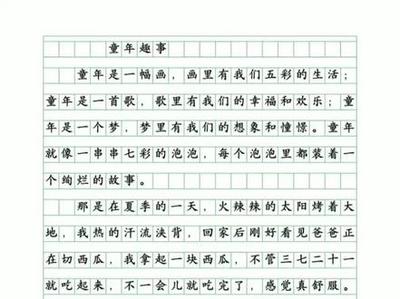 童年趣事
童年是一幅画，画里有我们五彩的生活；
童年是一首歌，歌里有我们的幸福和欢乐；童
年是一个梦，梦里有我们的想象和憧憬。童年
就像一串串七彩的泡泡，每个泡泡里都装着一
个绚烂的故事。
那是在夏季的一天，火辣辣的太阳烤着大
地，我热的汗流浃背，回家后刚好看见爸爸正
在切西瓜，我拿起一块西瓜，不管三七二十一
就吃起来，不一会儿就吃完了，感觉真舒服。